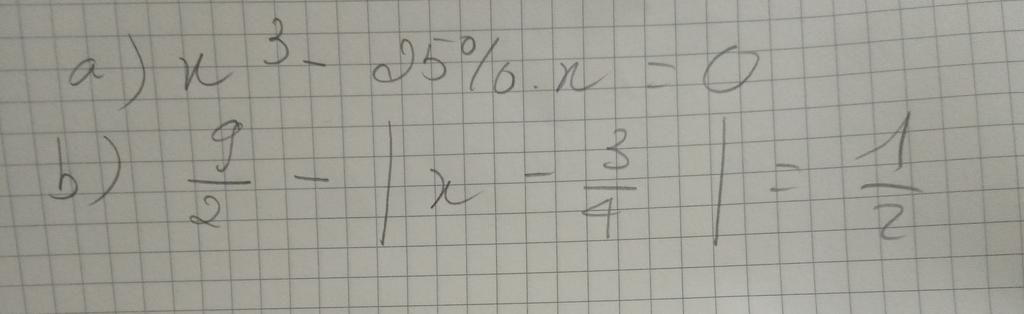 a) x³ - 25% . x = 0
b) 9/2 - | x - 3/4 | = 1/2